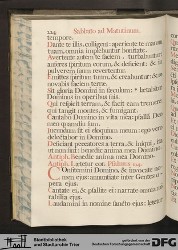 224 Sabbato ad Matutinum.
tempore.
Dante te illis, colligent: aperiente te manum
tuam, omnia implebuntur bonitate.
Avertente autem te faciem, turbabuntur:
auferes spiritum eorum, & deficient, & in
pulverem suum revertentur.
Emittes spiritum tuum, & creabuntur: & re-
novabis faciem terræ.
Sit gloria Domini in sæculum: * lætabitur
Dominus in operibus suis.
Qui respicit terram, & facit eam tremere:
qui tangit montes, & fumigant.
Cantabo Domino in vita mea: psallam Deo
meo quamdiu sum.
Jucundum sit ei eloquium meum: ego vero
delectabor in Domino.
Deficiant peccatores a terra, & iniqui
ita ut non sint: benedic anima mea Domino.
Antiph. Benedic anima mea Domino.
Antiph. Lætetur cor.
Confitemini Domino, & invocate no-
men ejus: annuntiate inter Gentes
opera ejus.
Cantate ei, & psallite ei: narrate omnia
mirabilia ejus.
Laudamini in nomine sancto ejus: lætetur
Stadtbibliothek
und Stadtarchiv Trier
gefördert von der
Deutschen Forschungsgemeinschaft
DFG